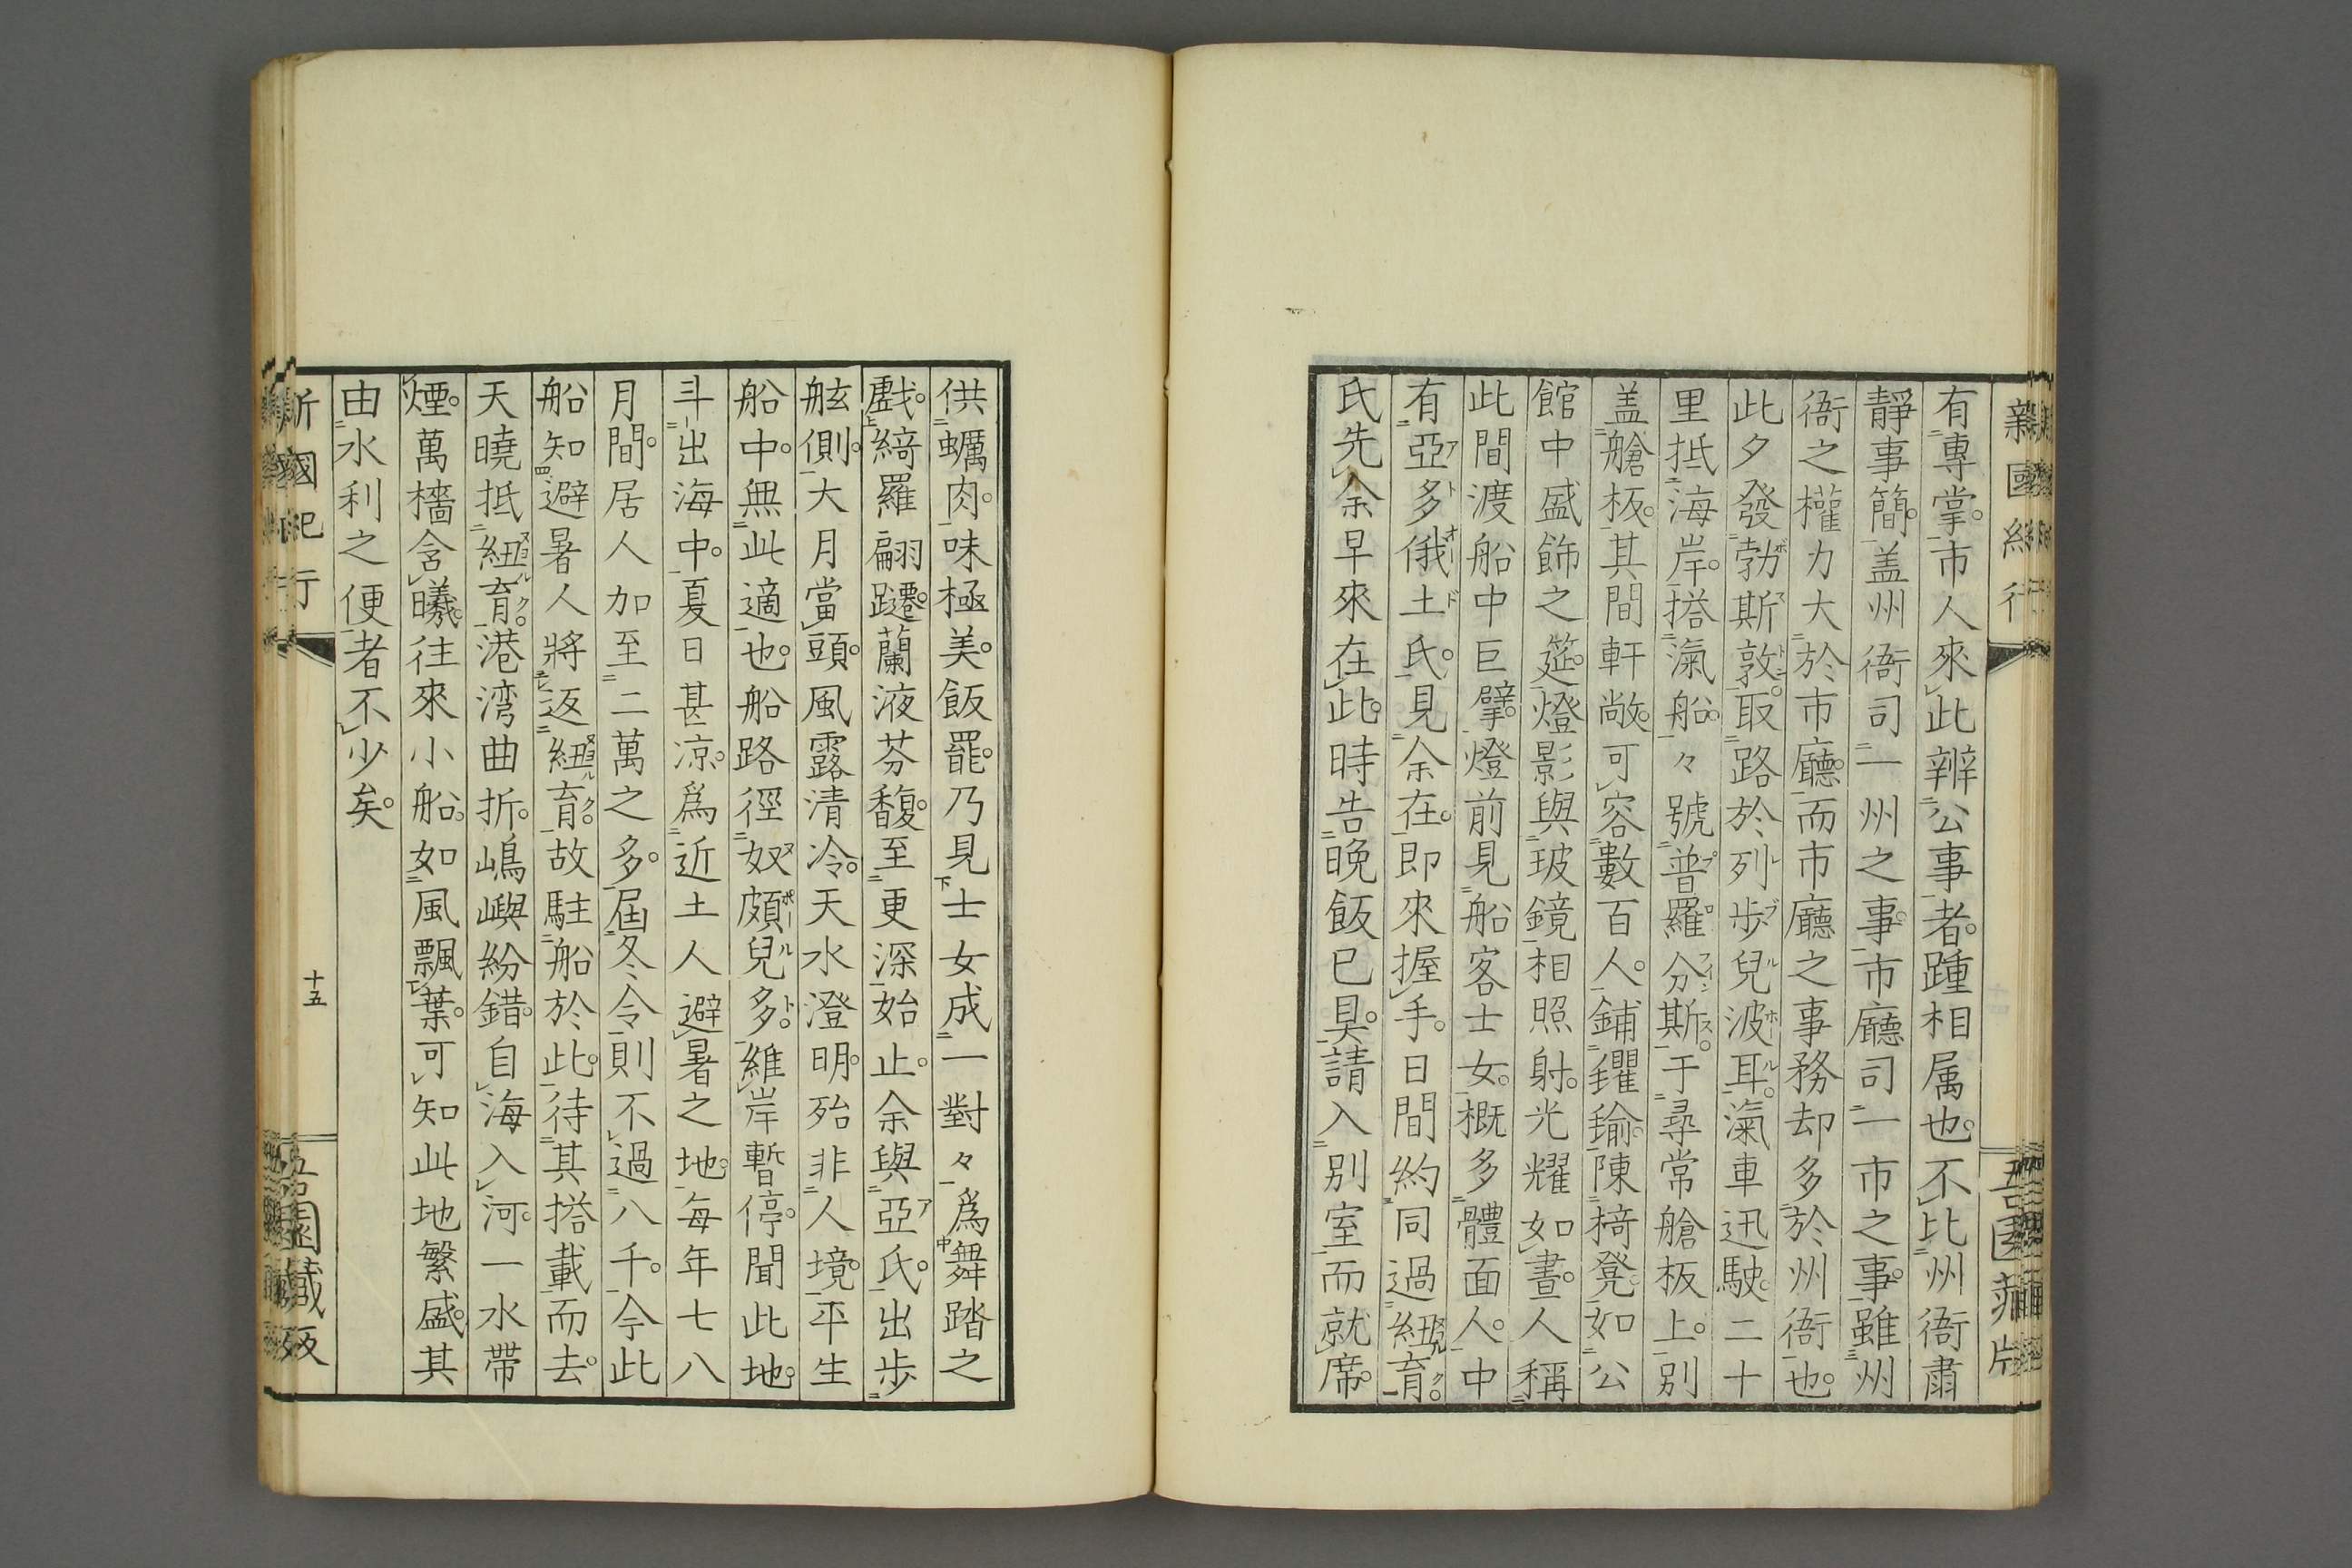 有專掌。市人來此辨公事者。踵相属也。不比州衙肅
靜事簡。盖州衙司一州之事。市廳司一市之事。雖州
衙之權力大於市廳。而市廳之事務却多於州衙也。
此夕發勃斯敦。取路於列歩兒波耳。滊車迅駛。二十
里抵海岸。搭滊船。々號普羅分斯。于尋常艙板上。別
盖艙板。其間軒敞。可容數百人。鋪氍毹。陳椅凳。如公
館中盛飾之筵。燈影與玻鏡相照射。光耀如晝。人稱
此間渡船中巨擘。燈前見船客士女。概多體面人。中
有亞多俄土氏。見余在。即來握手。日間約同過紐育。
氏先余早來在此。時告晩飯已具。請入別室而就席。
供蠣肉。味極美。飯罷。乃見士女成一對々為舞踏之
戲。綺羅翩躚。蘭液芬馥。至更深始止。余與亞氏。出歩
舷側。大月當頭。風露清冷。天水澄明。殆非人境。平生
船中。無此適也。船路徑奴頗兒多。維岸暫停。聞此地。
斗出海中。夏日甚凉。爲近土人避暑之地。每年七八
月間。居人加至二萬之多。屆冬令則不過八千。今此
船知避暑人將返紐育。故駐船於此。待其搭載而去。
天曉抵紐育。港湾曲折。嶋嶼紛錯。自海入河。一水帶
煙。萬檣含曦。往來小船。如風飄葉。可知此地繁盛。其
由水利之便者不少矣。
新國紀行
十五
吾園蔵版